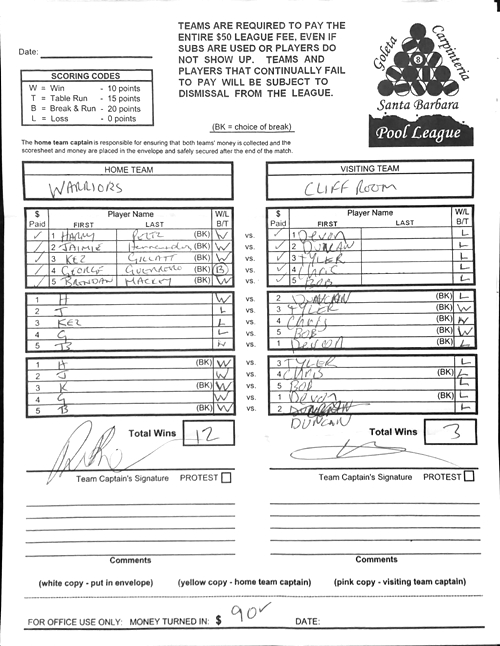 TEAMS ARE REQUIRED TO PAY THE
ENTIRE $50 LEAGUE FEE, EVEN IF
SUBS ARE USED OR PLAYERS DO
NOT SHOW UP. TEAMS AND
PLAYERS THAT CONTINUALLY FAIL
TO PAY WILL BE SUBJECT TO
DISMISSAL FROM THE LEAGUE.
Date:
SCORING CODES
W = Win - 10 points
T = Table Run - 15 points
B = Break & Run - 20 points
L = Loss - 0 points
Goleta
Carpinteria
8
Santa Barbara
Pool League
(BK = choice of break)
The home team captain is responsible for ensuring that both teams' money is collected and the
scoresheet and money are placed in the envelope and safely secured after the end of the match.
HOME TEAM VISITING TEAM
WARRIORS CLIFF ROOM
$ Player Name W/L $ Player Name W/L
Paid FIRST LAST B/T Paid FIRST LAST B/T
✓ 1 HARRY (BK) W vs. ✓ 1 DEVON L
✓ 2 JAIMIE Hernandez (BK) W vs. ✓ 2 DUNCAN L
✓ 3 KEZ GILLATT (BK) W vs. ✓ 3 TYLER L
✓ 4 GEORGE GUERRERO (BK) B vs. ✓ 4 CHRIS L
✓ 5 BRENDAN MACKEY (BK) W vs. ✓ 5 BOB L
1 H W vs. 2 DUNCAN (BK) L
2 J L vs. 3 TYLER (BK) W
3 KEZ L vs. 4 CHRIS (BK) W
4 G L vs. 5 BOB (BK) W
5 B W vs. 1 DEVON (BK) L
1 H (BK) W vs. 3 TYLER L
2 J W vs. 4 CHRIS (BK) L
3 K (BK) W vs. 5 BOB L
4 G W vs. 1 DEVON (BK) L
5 B (BK) W vs. 2 L
DUNCAN
Total Wins 12 Total Wins 3
Team Captain's Signature PROTEST Team Captain's Signature PROTEST
Comments Comments
(white copy - put in envelope) (yellow copy - home team captain) (pink copy - visiting team captain)
FOR OFFICE USE ONLY: MONEY TURNED IN: $ 90 ✓ DATE: